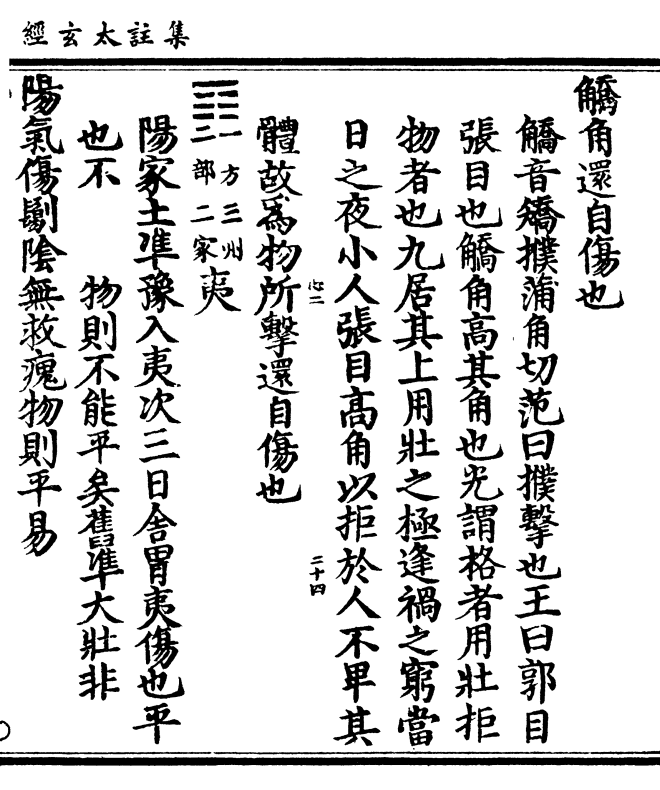 集註太玄經
觿角還自傷也
觿音矯撲蒲角切范曰撲擊也王曰郭目
張目也觿角高其角也光謂格者用壯拒
物者也九居其上用壯之極逢禍之窮當
日之夜小人張目高角以拒於人不卑其
心二
二十四
體故為物所擊還自傷也
一方三州
二部二家
夷
陽家土準豫入夷次三日舍胃夷傷也平
也不 物則不能平矣舊準大壯非
陽氣傷鬄陰無救瘣物則平易